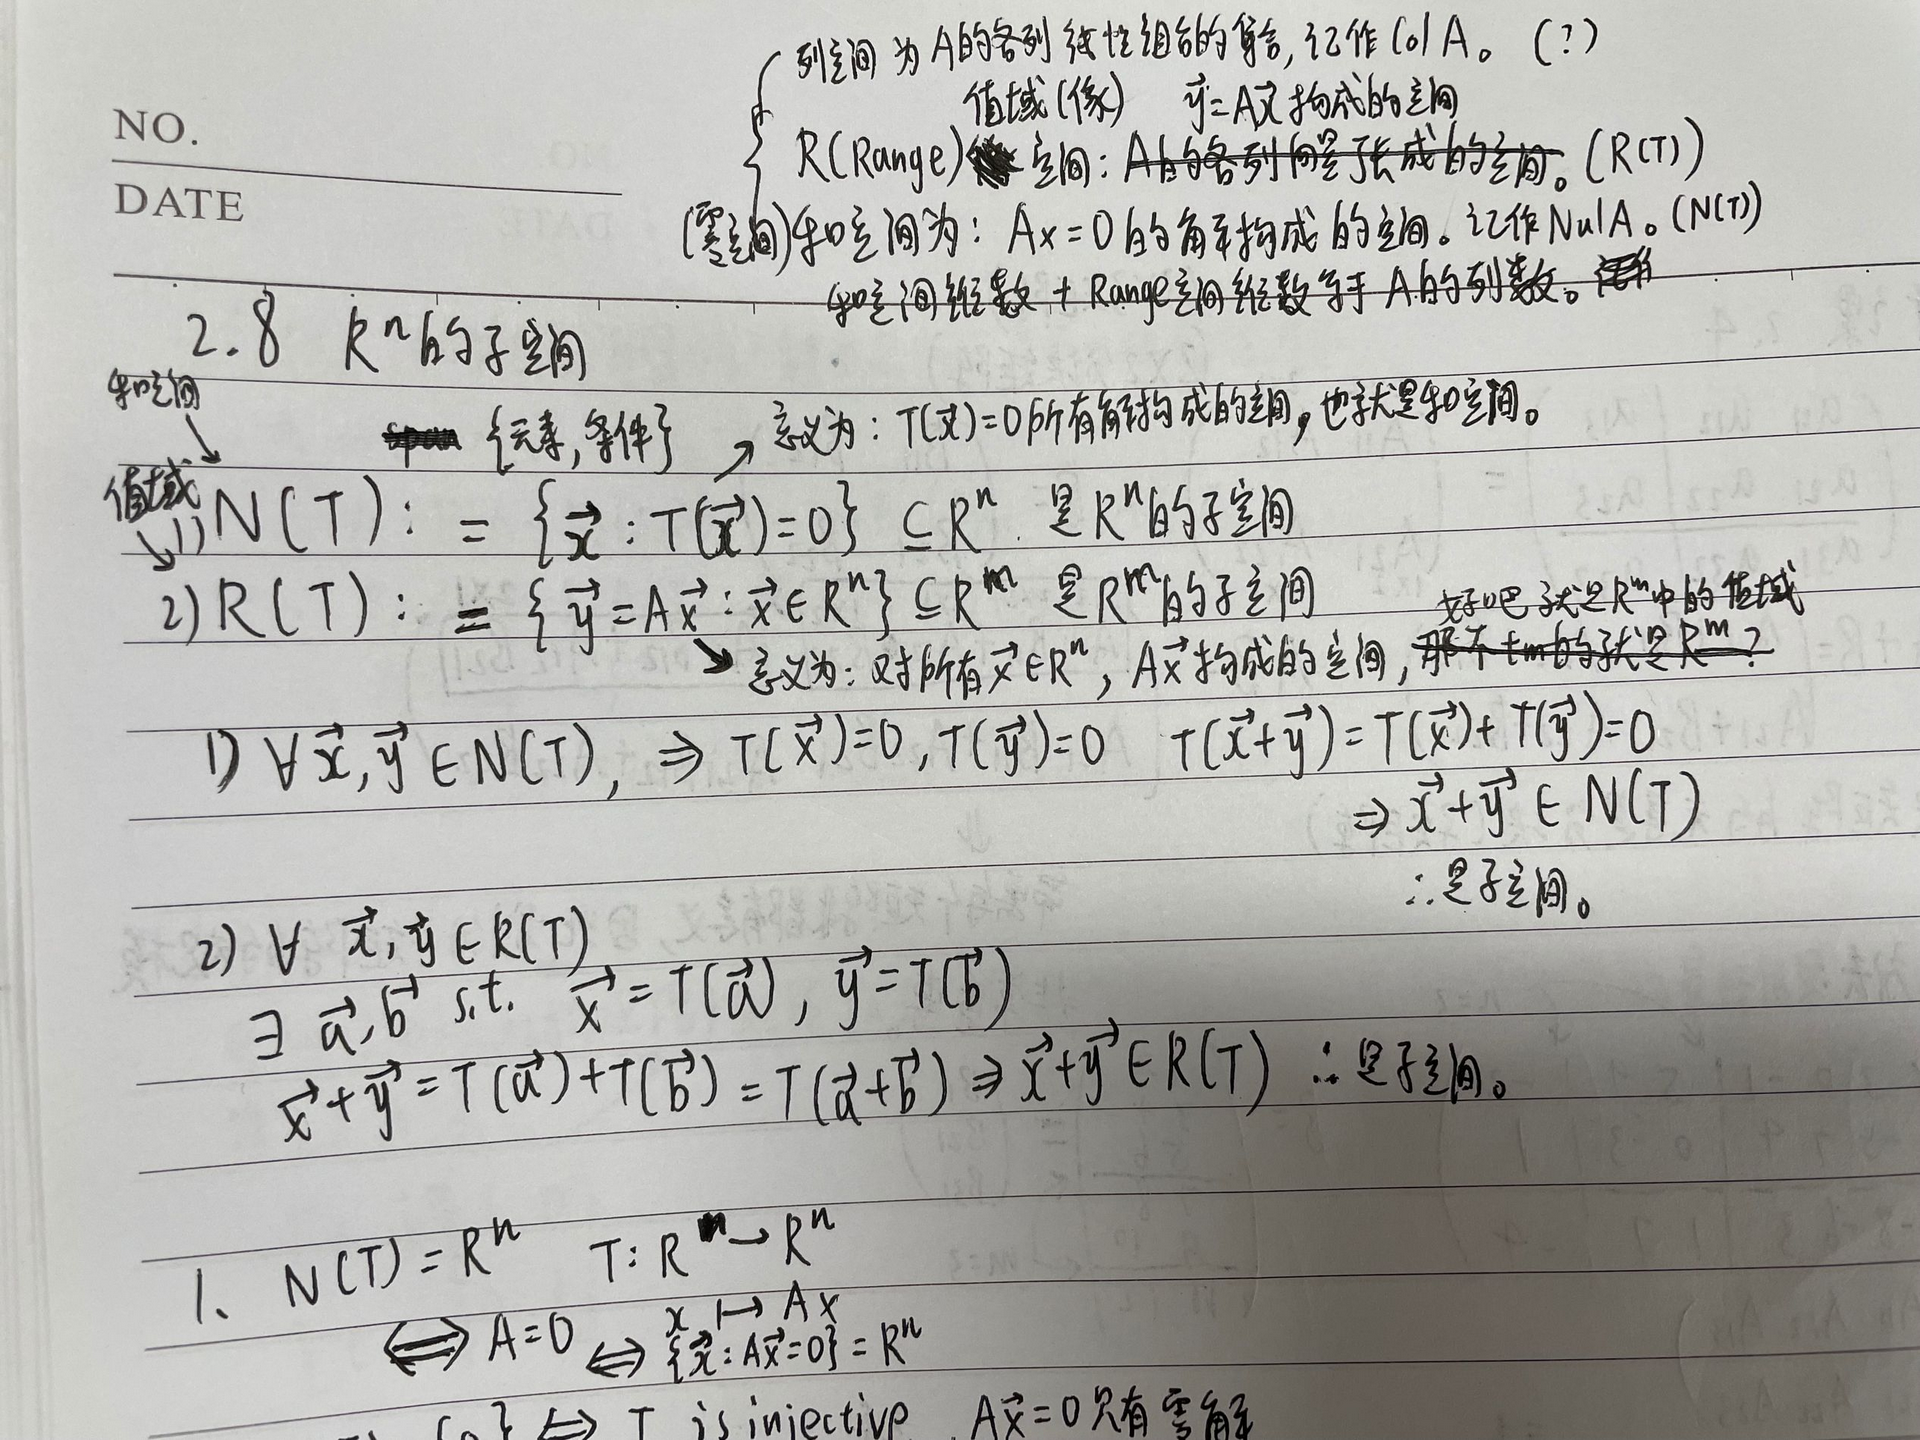 列空间为A的各列线性组合的集合,记作ColA。(?)
值域(像) y⃗=Ax⃗构成的空间
NO.
R(Range)空间:A的各列向量张成的空间。(R(T))
DATE
(零空间)和空间为:Ax=0的解构成的空间。记作NulA。(N(T))
和空间维数+Range空间维数等于A的列数。
2.8 Rⁿ的子空间
和空间
span {元素,条件} 意义为:T(x⃗)=0所有解构成的空间,也就是和空间。
值域
1) N(T): = {x⃗:T(x⃗)=0} ⊆Rⁿ. 是Rⁿ的子空间
2) R(T): = {y⃗=Ax⃗:x⃗∈Rⁿ}⊆Rᵐ 是Rᵐ的子空间
好吧就是Rᵐ中的值域
意义为:对所有x⃗∈Rⁿ, Ax⃗构成的空间,那不tm的就是Rᵐ?
1) ∀x⃗,y⃗∈N(T), ⇒ T(x⃗)=0,T(y⃗)=0 T(x⃗+y⃗)=T(x⃗)+T(y⃗)=0
⇒ x⃗+y⃗ ∈ N(T)
∴是子空间。
2) ∀ x⃗,y⃗∈R(T)
∃ a⃗,b⃗ s.t. x⃗=T(a⃗), y⃗=T(b⃗)
x⃗+y⃗=T(a⃗)+T(b⃗)=T(a⃗+b⃗)⇒x⃗+y⃗∈R(T) ∴是子空间。
1、 N(T)=Rⁿ T:Rᵐ→Rⁿ
x ↦ Ax
⟺ A=0 ⟺ {x⃗:Ax⃗=0}=Rⁿ
{0} ⟺ T is injective Ax⃗=0只有零解